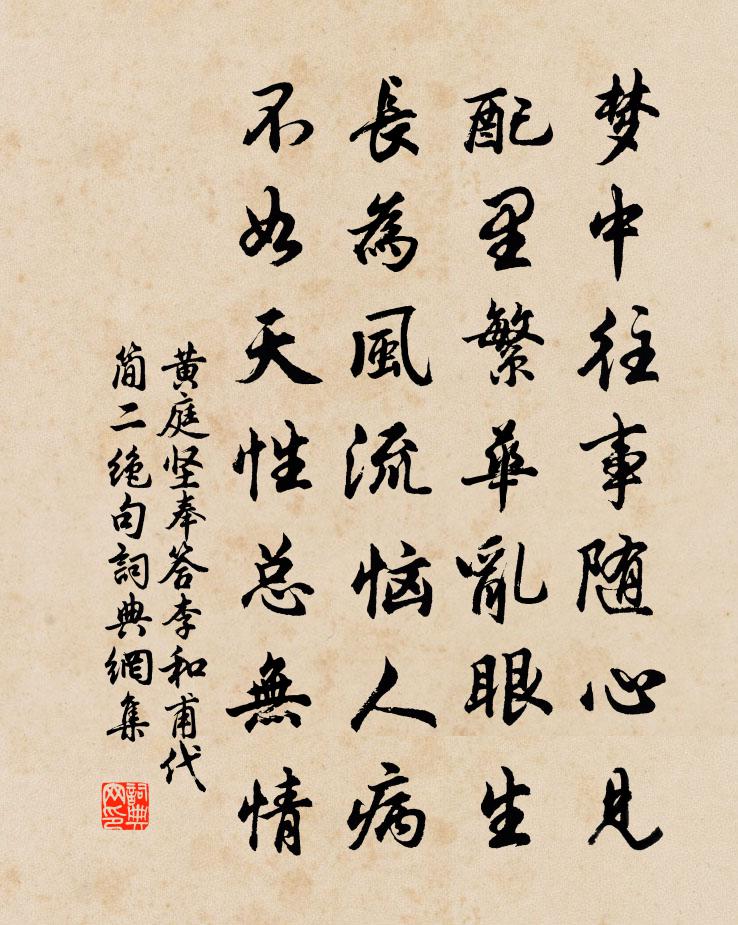 梦中往事随心见
配里繁華亂眼生
長為風流恼人病
不如天性总無情
黄庭坚奉答李和甫代
简二绝句詞典網集
詞典
网印